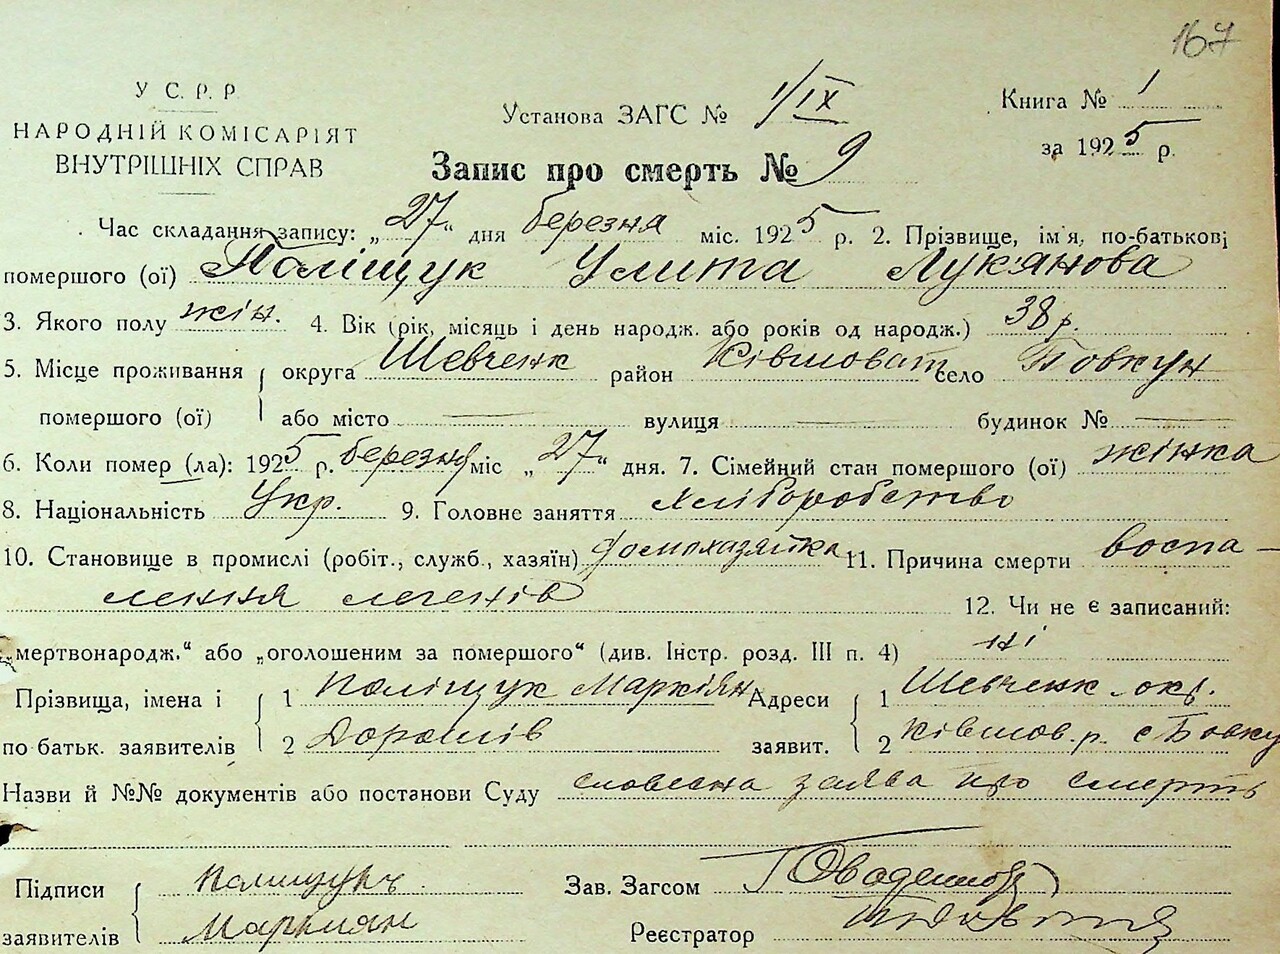 167
У С. Р. Р
НАРОДНІЙ КОМІСАРІЯТ
ВНУТРІШНІХ СПРАВ
Установа ЗАГС № 1/IX
Книга № 1
за 1925 р.
Запис про смерть № 9
Час складання запису: „27“ дня березня міс. 1925 р. 2. Прізвище, ім'я, по-батькові
помершого (ої) Поліщук Улита Лук'янова
3. Якого полу жін. 4. Вік (рік, місяць і день народж. або років од народж.) 38 р.
5. Місце проживання округа Шевченк район Ківшоват село Бовкун
помершого (ої) або місто вулиця будинок №
6. Коли помер (ла): 1925 р. березня міс „27“ дня. 7. Сімейний стан помершого (ої) жінка
8. Національність Укр. 9. Головне заняття хліборобство
10. Становище в промислі (робіт., служб., хазяїн) домохазяйка 11. Причина смерти воспа-
лення легенів 12. Чи не є записаний:
„мертвонародж.“ або „оголошеним за помершого“ (див. Інстр. розд. III п. 4) ні
Прізвища, імена і 1 Поліщук Маркіян Адреси 1 Шевченк. окр.
по батьк. заявителів 2 Дорошів заявит. 2 Ківшов. р. с Бовку
Назви й №№ документів або постанови Суду словесна заява про смерть
Підписи Полищукъ Зав. Загсом
заявителів Маркиян Реєстратор